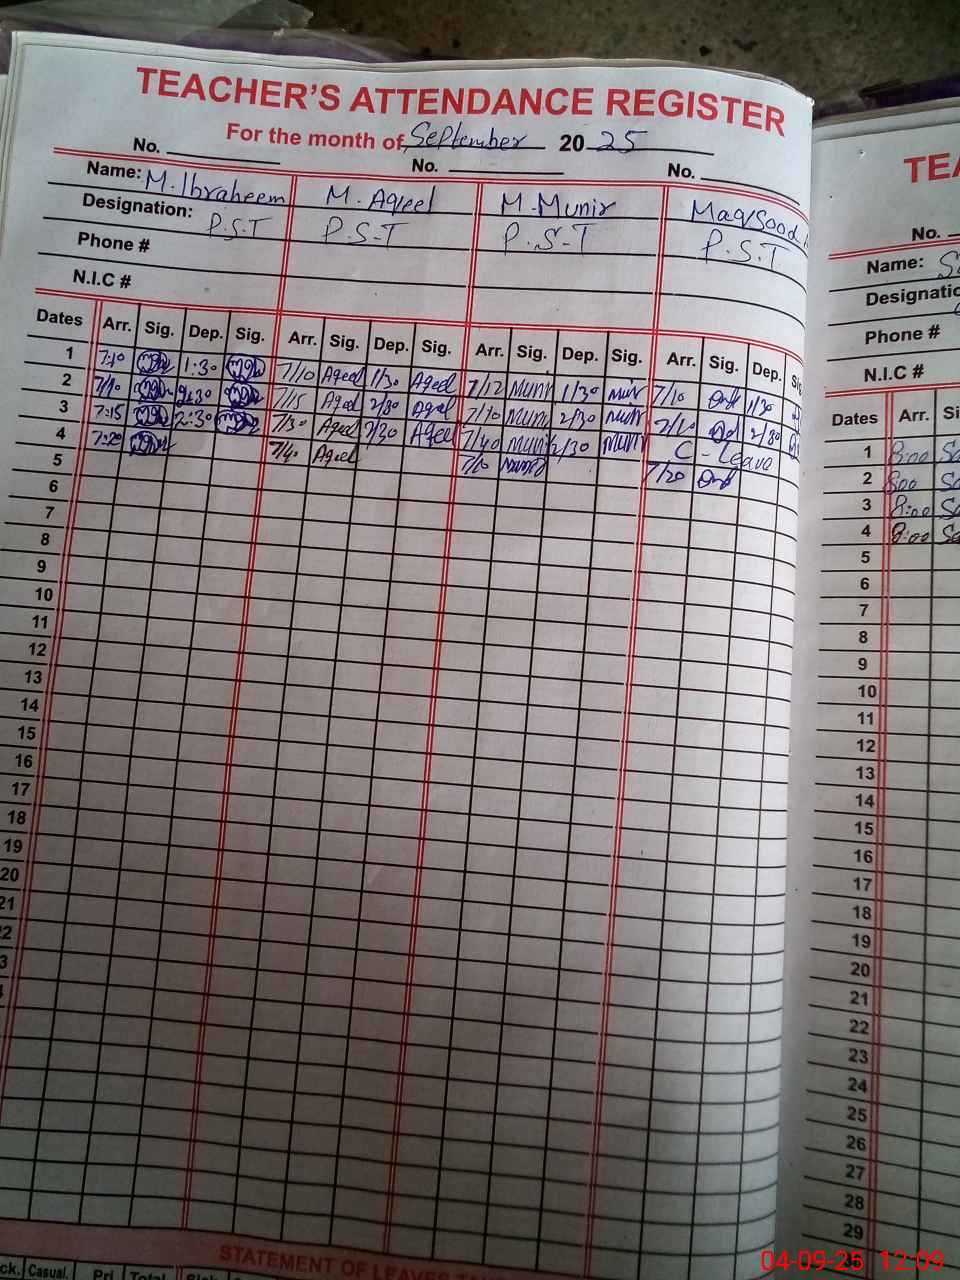 TEACHER'S ATTENDANCE REGISTER
For the month of September 20 25
No. No. No.
Name: M. Ibraheem M. Aqeel M. Munir Maqsood
Designation: P.S.T P.S.T P.S.T P.S.T
Phone #
N.I.C #
Dates Arr. Sig. Dep. Sig. Arr. Sig. Dep. Sig. Arr. Sig. Dep. Sig. Arr. Sig. Dep.
1 7:10 1:30 7/10 Aqeel 1/30 Aqeel 7/12 Munir 1/30 7/10 1/30
2 7/10 7/15 Aqeel 2/30 Aqeel 7/10 Munir 2/30 Munir 7/10 2/30
3 7:15 2:30 7/30 Aqeel 2/30 Aqeel 7/40 Munir 2/30 Munir C - Leave
4 7:20 7/40 Aqeel 7/20
5
6
7
8
9
10
11
12
13
14
15
16
17
18
19
20
21
STATEMENT OF LEAVES
Casual. Pri Total
No.
Name:
Designatio
Phone #
N.I.C #
Dates Arr. S
1 8:00
2 8:00
3 8:00
4 8:00
5
6
7
8
9
10
11
12
13
14
15
16
17
18
19
20
21
22
23
24
25
26
27
28
29
04-09-25 12:09